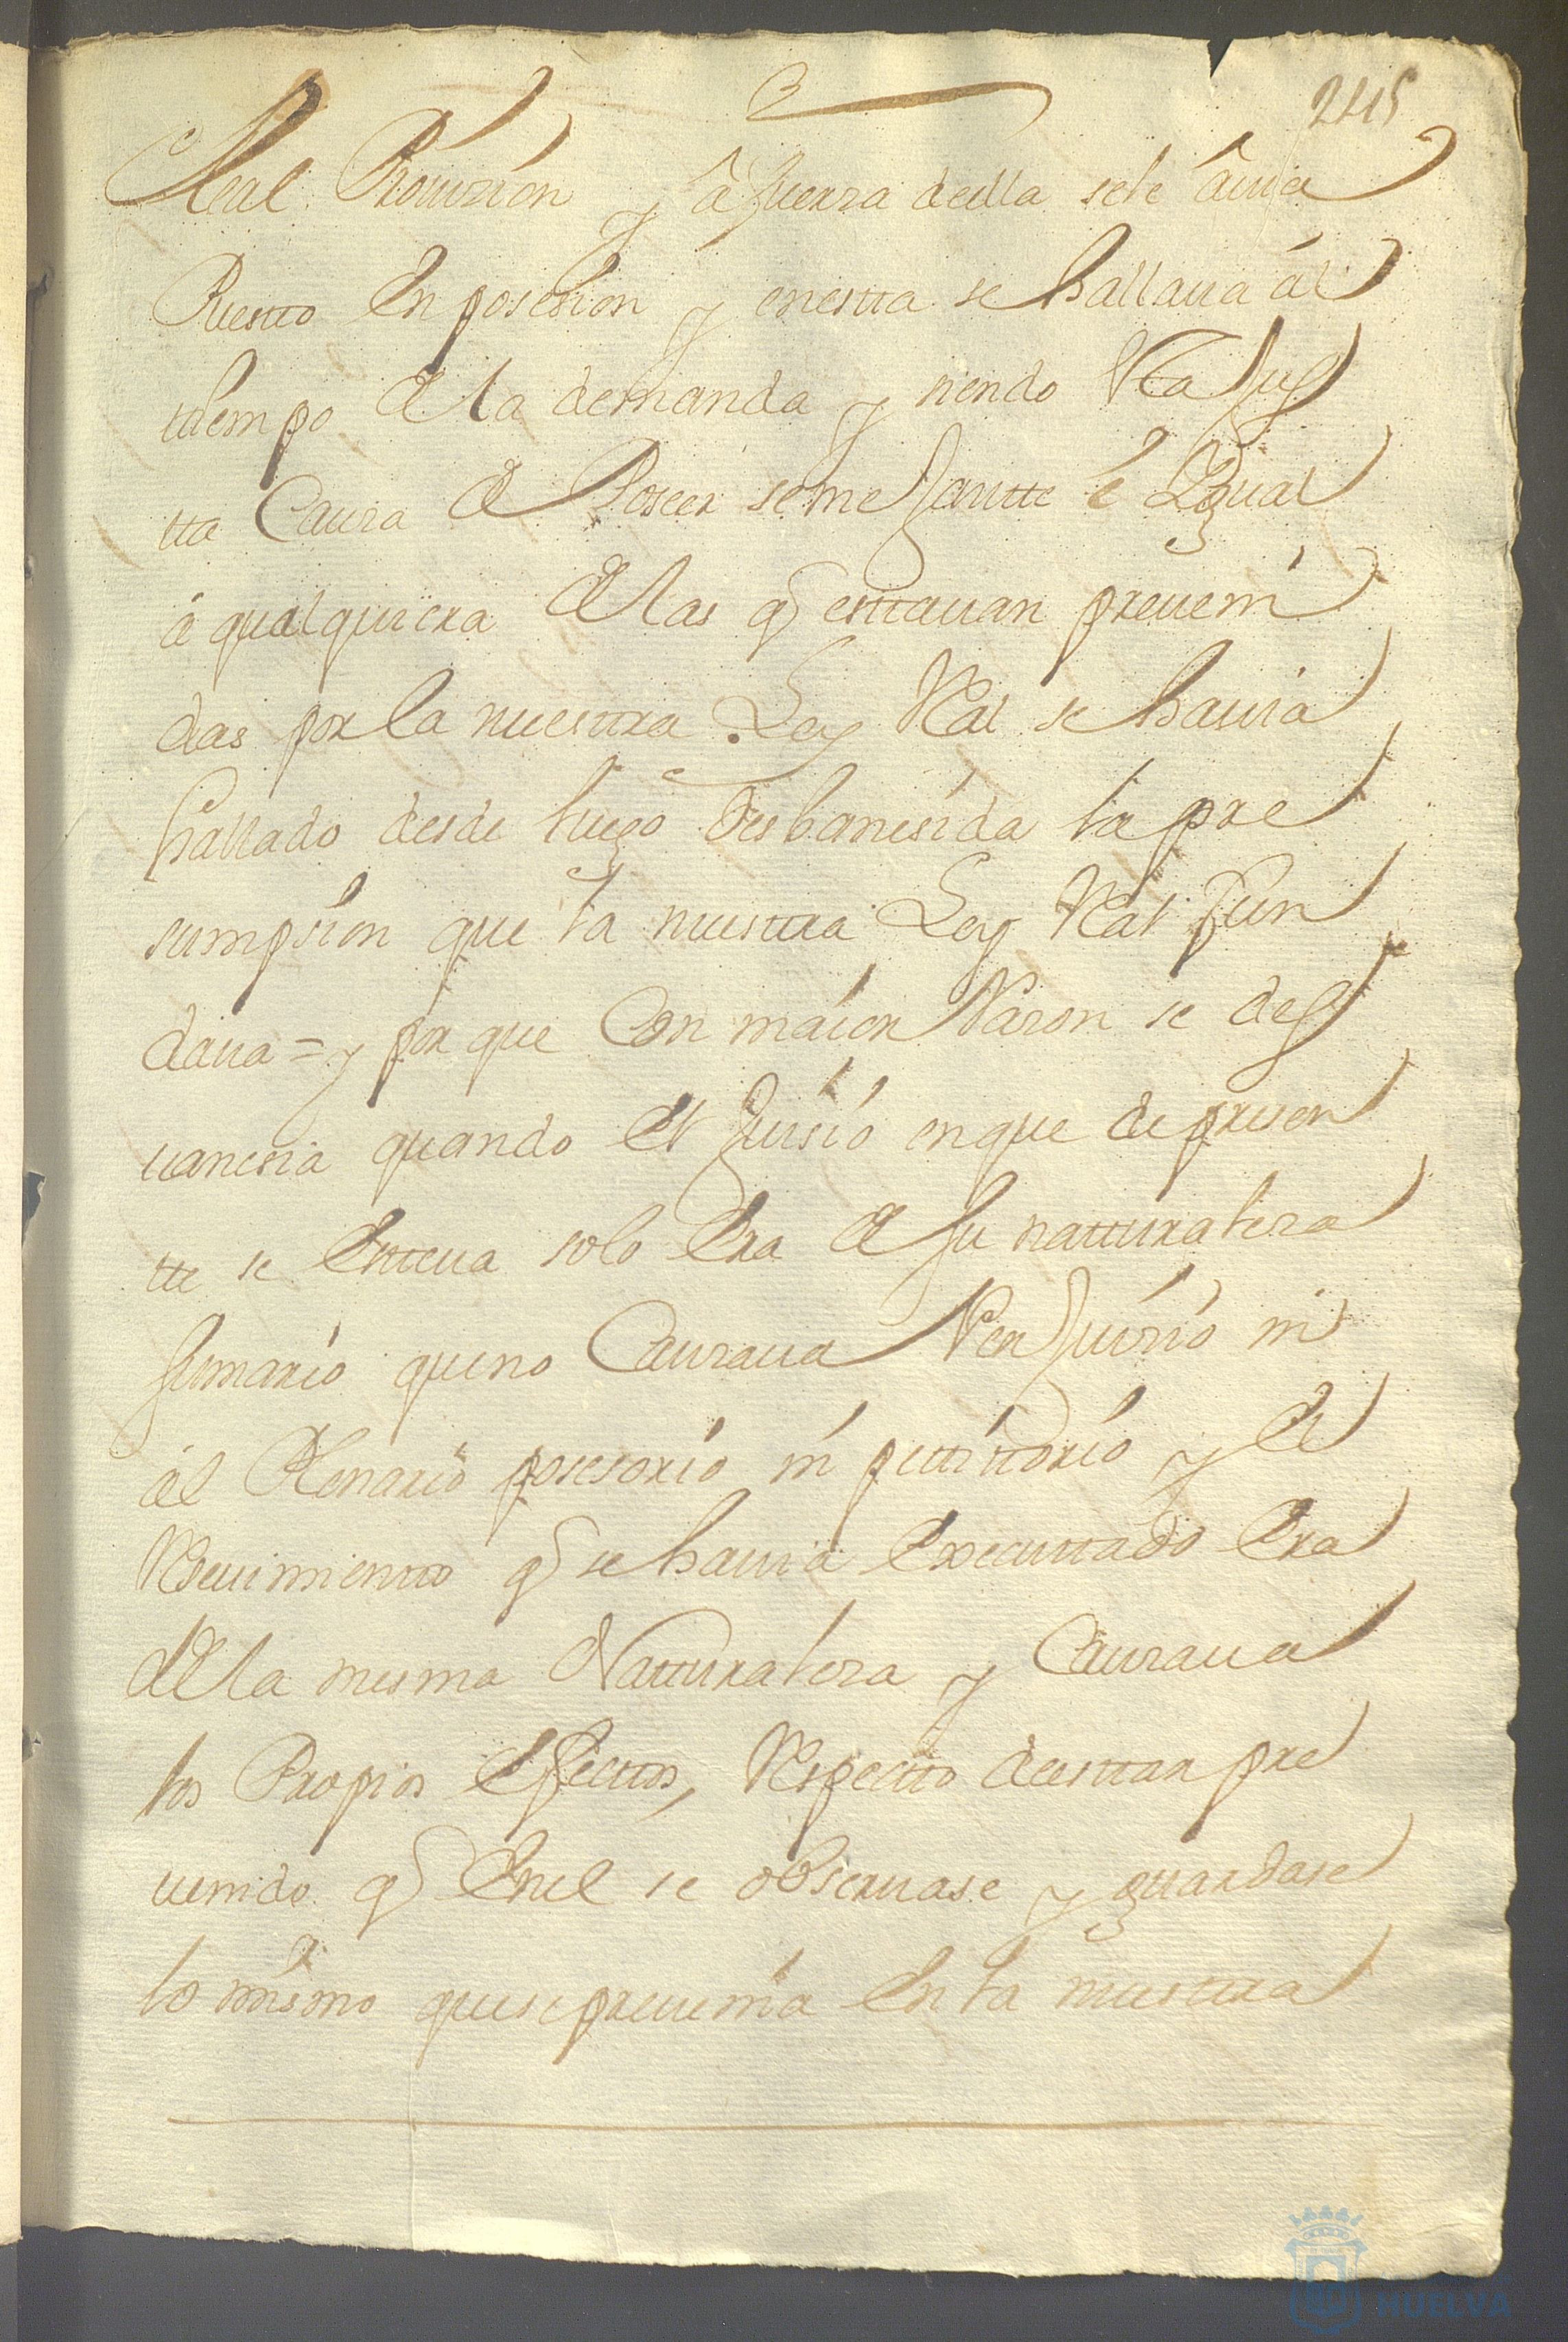 245
Real Prouizion y â fuerza deella sele âuia
Puesto En posesion y enestta se hallaua ál
tiempo de la demanda y siendo Esta Jus
tta Causa de Poseer semejantte é Igual
á qualquiera de las q̃ esttauan preueni
das por la nuesttra Ley Real se hauia
hallado desde luego desbanesida la pre
sumpsion que la nuesttra Ley Real fun
daua = y porque Con maior Razon se des
uanesia quando el Juisio enque depresen
tte se Esttaua solo Era de su natturalesa
sumario queno Causaua Perjuizio ni
ál Plenario posesorio ni petittorio y el
Reseuimientto q̃ se hauia Executtado Era
de la mesma Natturalesa y Causaua
los Propios Efecttos, Respectto deesttar pre
uenido q̃ Enel se obseruase y guardase
lo mismo quesepreuenia En la nuesttra
HUELVA